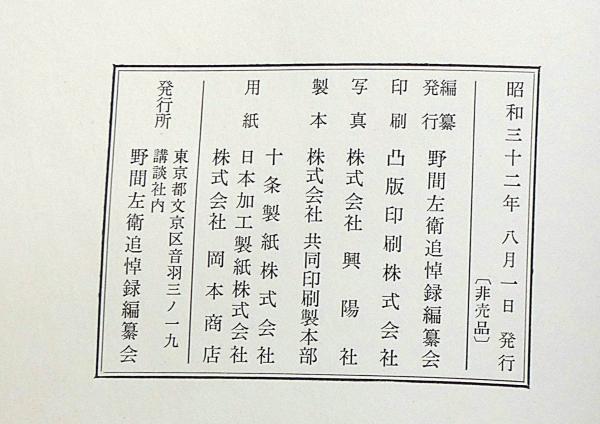 昭和三十二年 八月一日 発行
〔非売品〕
編纂
発行 野間左衛追悼録編纂会
印刷 凸版印刷株式会社
写真 株式会社 興陽社
製本 株式会社 共同印刷製本部
用紙 十条製紙株式会社
日本加工製紙株式会社
株式会社 岡本商店
発行所 東京都文京区音羽三ノ一九
講談社内
野間左衛追悼録編纂会